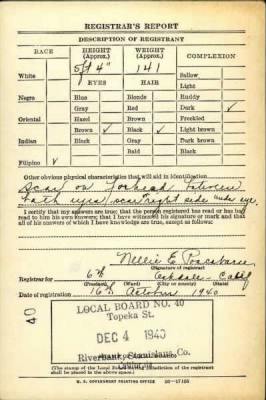 REGISTRAR'S REPORT
DESCRIPTION OF REGISTRANT
RACE HEIGHT (Approx.) WEIGHT (Approx.) COMPLEXION
5 ft 4" 141
White Sallow
EYES HAIR Light
Negro Blue Blonde Ruddy
Gray Red Dark ✓
Oriental Hazel Brown Freckled
Brown ✓ Black ✓ Light brown
Indian Black Gray Dark brown
Bald Black
Filipino ✓
Other obvious physical characteristics that will aid in identification
Scar on forehead between
both eyes, scar right side under eye.
I certify that my answers are true; that the person registered has read or has had
read to him his own answers; that I have witnessed his signature or mark and that
all of his answers of which I have knowledge are true, except as follows:
Nellie E.
(Signature of registrar)
Registrar for 6th Oakdale Calif
(Precinct) (City or county) (State)
Date of registration 16th October 1940
LOCAL BOARD NO. 40
40
Topeka St.
DEC 4 1940
Riverbank, Stanislaus Co.
California
(The stamp of the Local Board having jurisdiction of the registrant shall
be placed in the above space.)
U. S. GOVERNMENT PRINTING OFFICE 16—17105